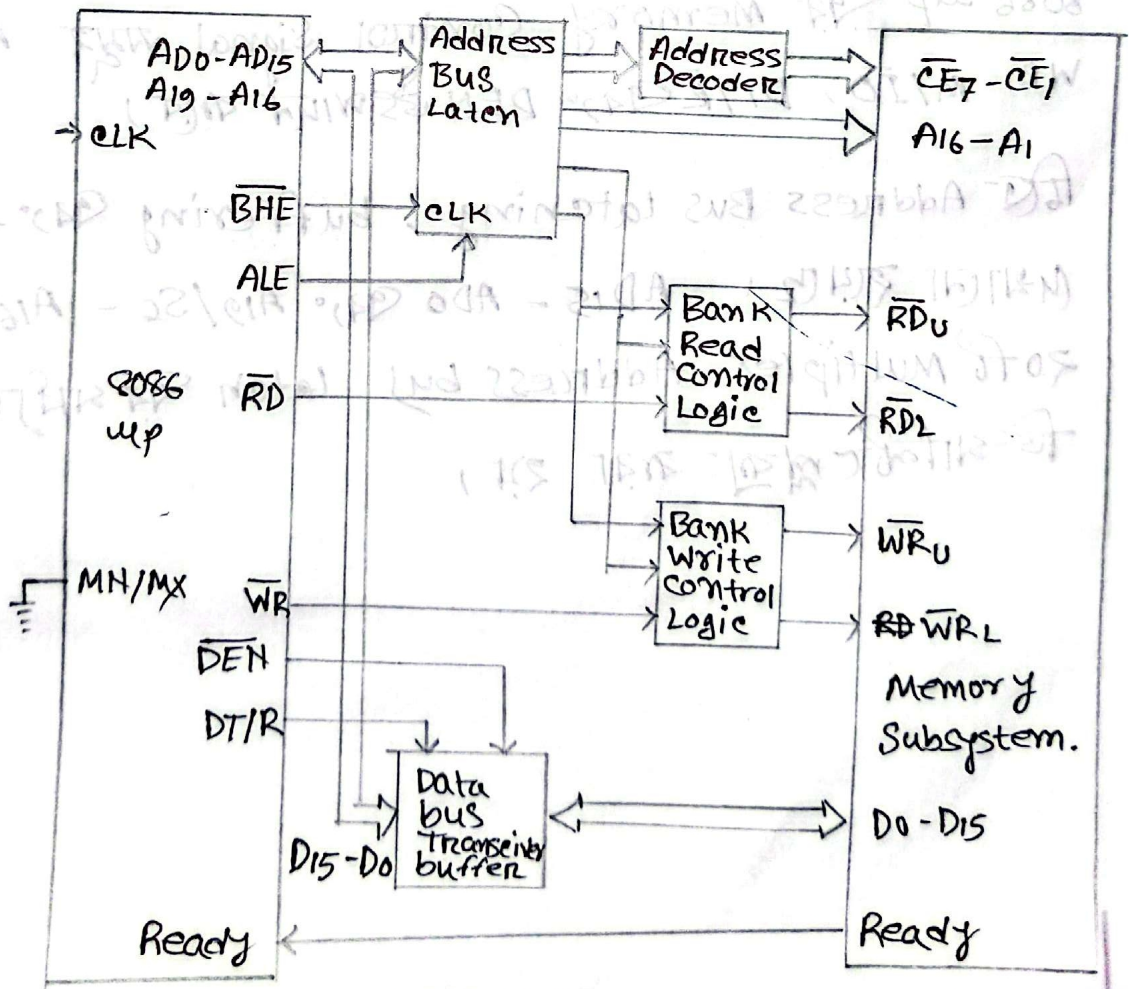 AD0-AD15
A19-A16
CLK
BHE
ALE
8086
μp
RD
MN/MX
WR
DEN
DT/R
D15-D0
Ready
Address
Bus
Laten
CLK
Address
Decoder
Bank
Read
Control
Logic
Bank
Write
Control
Logic
Data
bus
Transeiver
buffer
CE7-CE1
A16-A1
RDU
RDL
WRU
WRL
Memory
Subsystem.
D0-D15
Ready